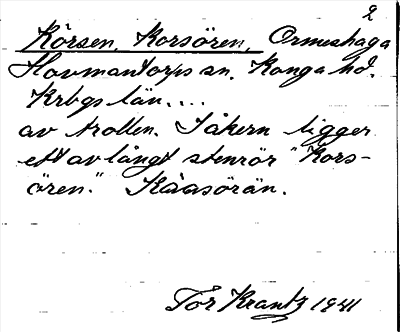 2
Korsen, Korsören, Ormeshaga
Hovmantorps sn. Konga hd.
Krbgs län....
av trollen. I åkern ligger
ett avlångt stenrör "Kors-
ören." Kåasörän.
Tor Krantz 1941